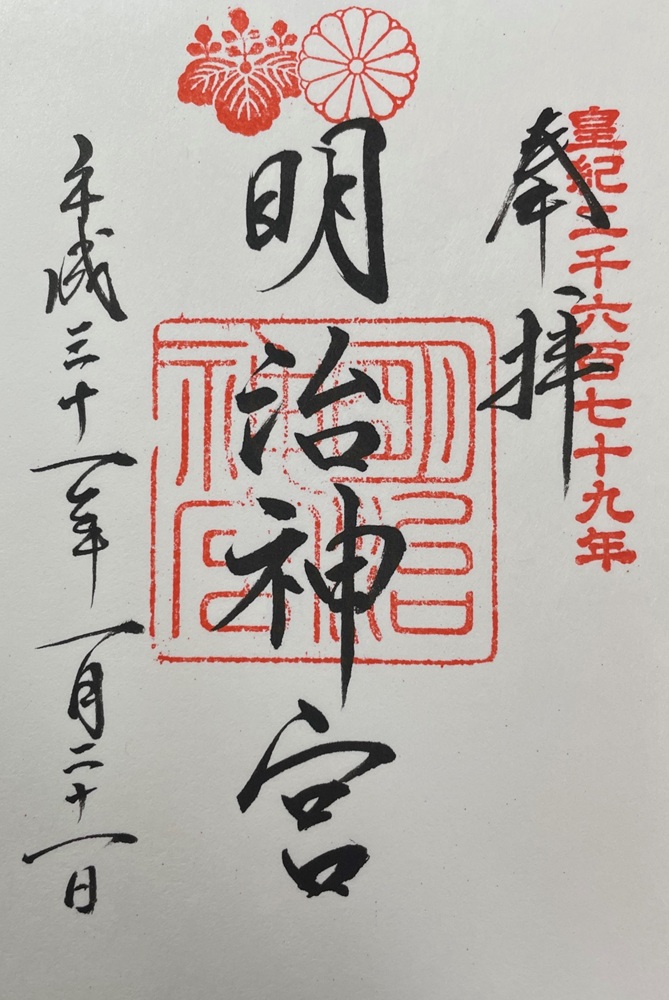 皇紀二千六百七十九年
奉拝
明治神宮
明治神宮
平成三十一年一月二十一日